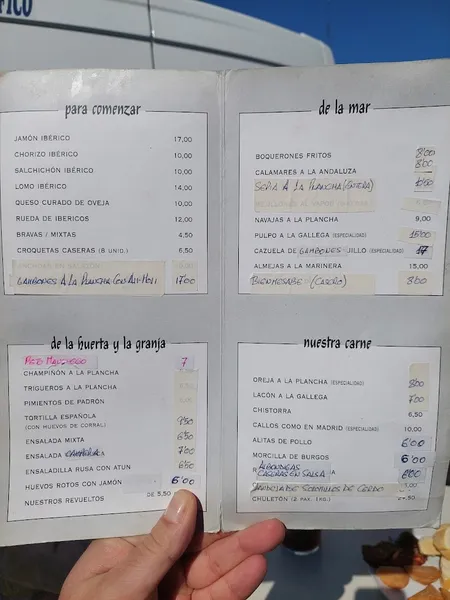 para comenzar
JAMÓN IBÉRICO 17,00
CHORIZO IBÉRICO 10,00
SALCHICHÓN IBÉRICO 10,00
LOMO IBÉRICO 14,00
QUESO CURADO DE OVEJA 10,00
RUEDA DE IBERICOS 12,00
BRAVAS / MIXTAS 4,50
CROQUETAS CASERAS (8 UNID.) 6,50
GAMBONES A LA PLANCHA CON ALI-HOLI 17'00
de la huerta y la granja
PISTO MANCHEGO 7
CHAMPIÑÓN A LA PLANCHA
TRIGUEROS A LA PLANCHA
PIMIENTOS DE PADRÓN
TORTILLA ESPAÑOLA 9'50
(CON HUEVOS DE CORRAL)
ENSALADA MIXTA 6'50
ENSALADA 7'00
ENSALADILLA RUSA CON ATUN 6'50
HUEVOS ROTOS CON JAMÓN 6'00
NUESTROS REVUELTOS DE 5,50
de la mar
BOQUERONES FRITOS 8'00
CALAMARES A LA ANDALUZA 8'00
SEPIA A LA PLANCHA (ENTERA)
NAVAJAS A LA PLANCHA 9,00
PULPO A LA GALLEGA (ESPECIALIDAD) 15'00
CAZUELA DE GAMBONES JILLO (ESPECIALIDAD) 17
ALMEJAS A LA MARINERA 15,00
BIENMESABE (CASERO) 8'00
nuestra carne
OREJA A LA PLANCHA (ESPECIALIDAD) 8'00
LACÓN A LA GALLEGA 7'00
CHISTORRA 6,50
CALLOS COMO EN MADRID (ESPECIALIDAD) 10,00
ALITAS DE POLLO 6'00
MORCILLA DE BURGOS 6'00
ALBONDIGAS
CASERAS EN SALSA 6'00
BANDEJA DE SOLOMILLOS DE CERDO
CHULETÓN (2 PAX. 1KG.)